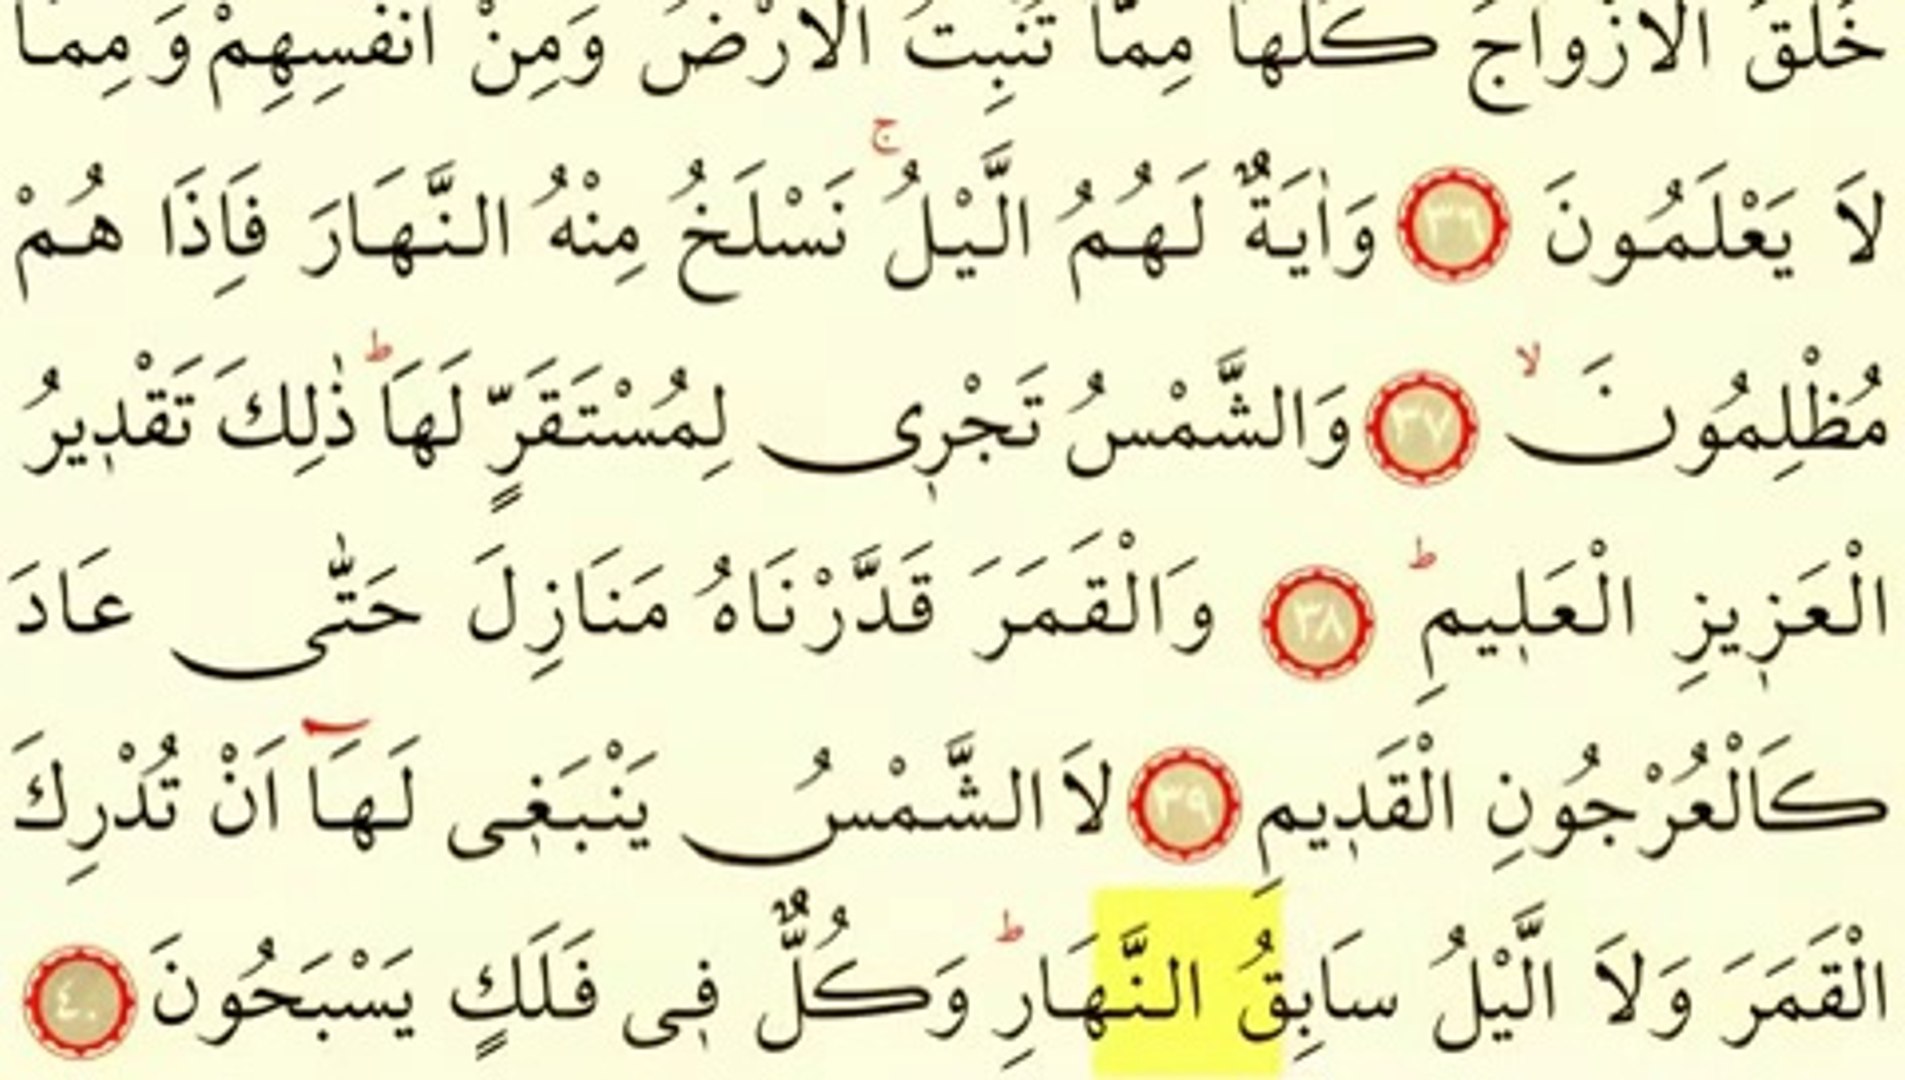 خَلَقَ الْاَزْوَاجَ كُلَّهَا مِمَّا تُنْبِتُ الْاَرْضُ وَمِنْ اَنْفُسِهِمْ وَمِمَّا
لَا يَعْلَمُونَ ﴿٣٦﴾ وَاٰيَةٌ لَهُمُ الَّيْلُ ۚ نَسْلَخُ مِنْهُ النَّهَارَ فَاِذَا هُمْ
مُظْلِمُونَ ۙ ﴿٣٧﴾ وَالشَّمْسُ تَجْرٖى لِمُسْتَقَرٍّ لَهَا ؕ ذٰلِكَ تَقْدٖيرُ
الْعَزٖيزِ الْعَلٖيمِ ؕ ﴿٣٨﴾ وَالْقَمَرَ قَدَّرْنَاهُ مَنَازِلَ حَتّٰى عَادَ
كَالْعُرْجُونِ الْقَدٖيمِ ﴿٣٩﴾ لَا الشَّمْسُ يَنْبَغٖى لَهَٓا اَنْ تُدْرِكَ
الْقَمَرَ وَلَا الَّيْلُ سَابِقُ النَّهَارِ ؕ وَكُلٌّ فٖى فَلَكٍ يَسْبَحُونَ ﴿٤٠﴾